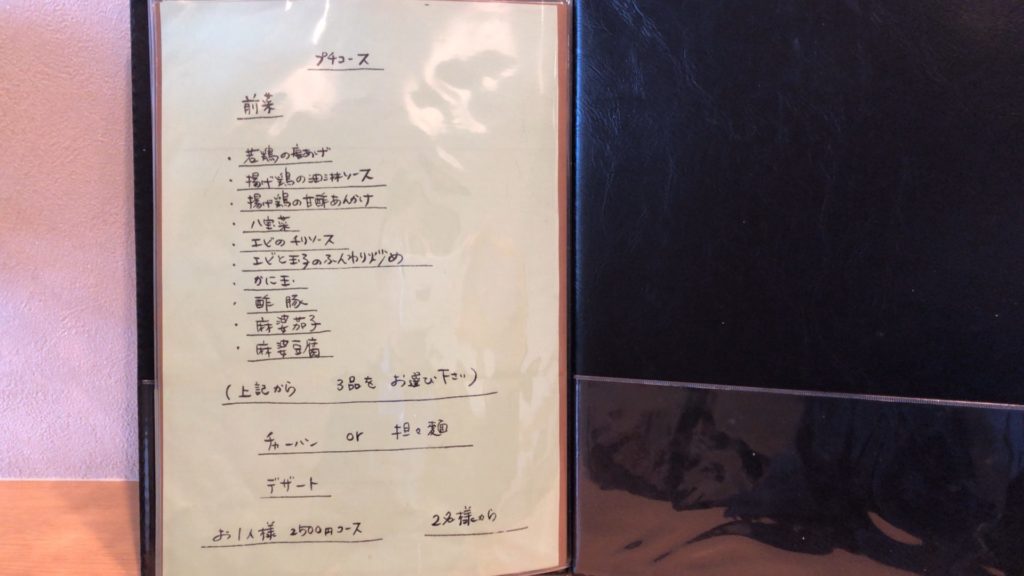 プチコース
前菜
・若鶏の唐あげ
・揚げ鶏の油淋ソース
・揚げ鶏の甘酢あんかけ
・八宝菜
・エビのチリソース
・エビと玉子のふんわり炒め
・かに玉
・酢豚
・麻婆茄子
・麻婆豆腐
(上記から 3品を お選び下さい)
チャーハン or 担々麺
デザート
お1人様 2500円コース 2名様から